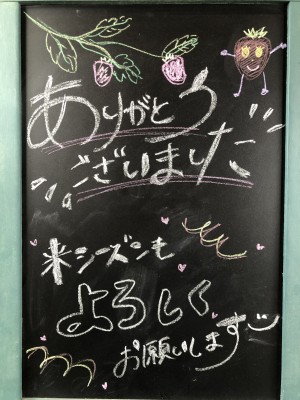 ありがとう
ございました
来シーズンも
よろしく
お願いします